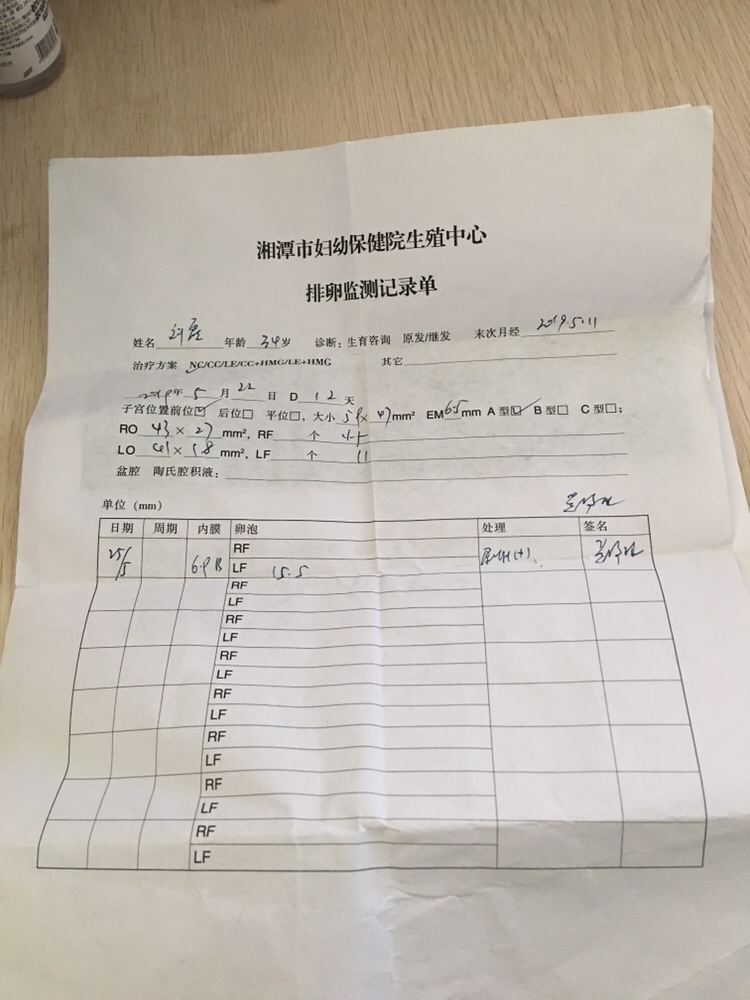 湘潭市妇幼保健院生殖中心
排卵监测记录单
姓名 年龄 34岁 诊断：生育咨询 原发/继发 末次月经 2019.5.11
治疗方案 NC/CC/LE/CC+HMG/LE+HMG 其它
2019年 5 月 22 日 D 12 天
子宫位置前位☑ 后位□ 平位□，大小 × 47mm² EM 6.5mm A 型☑ B 型□ C 型□；
RO 43 × 27 mm²，RF 个
LO × 18 mm²，LF 个 11
盆腔 陶氏腔积液：
单位（mm）
日期 周期 内膜 卵泡 处理 签名
25/5 6.9 B RF
LF 15.5
RF
LF
RF
LF
RF
LF
RF
LF
RF
LF
RF
LF
RF
LF